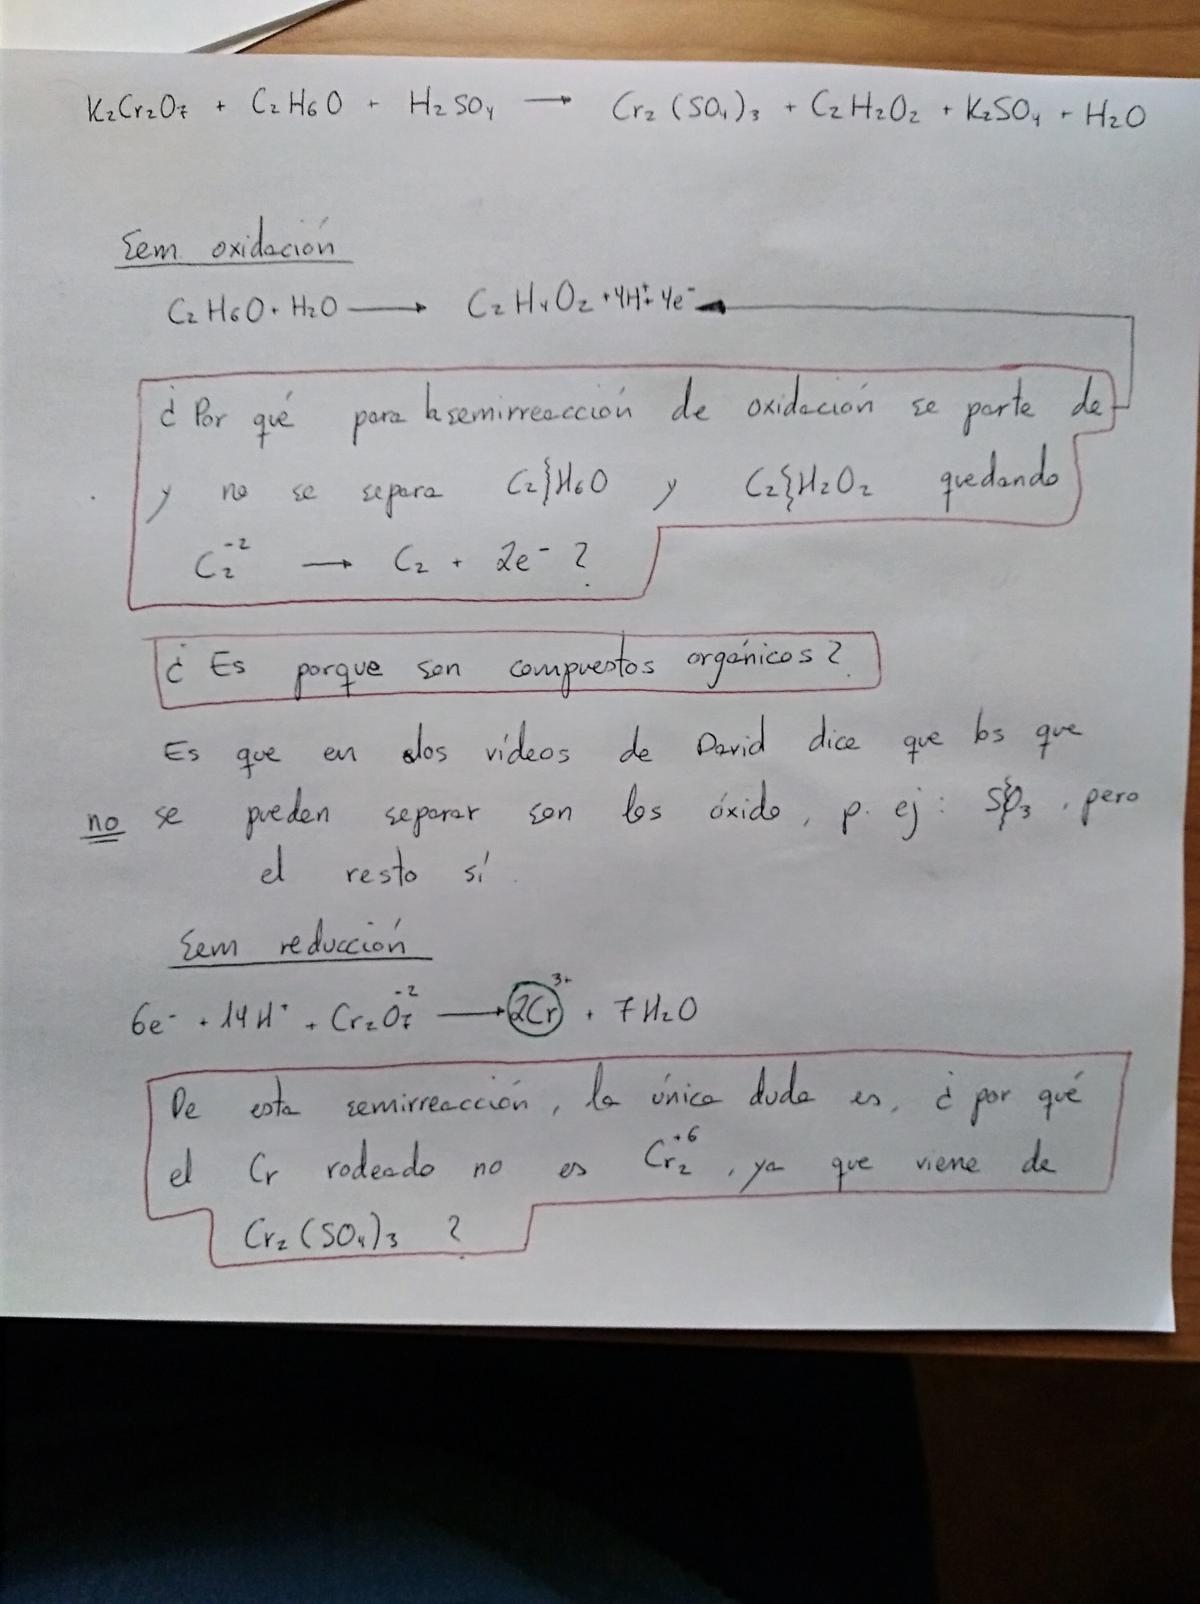 K₂Cr₂O₇ + C₂H₆O + H₂SO₄ → Cr₂(SO₄)₃ + C₂H₂O₂ + K₂SO₄ + H₂O
Sem oxidación
C₂H₆O + H₂O → C₂H₄O₂ + 4H⁺ + 4e⁻
¿Por qué para la semirreacción de oxidación se parte de
y no se separa C₂}H₆O y C₂}H₂O₂ quedando
C₂⁻² → C₂ + 2e⁻ ?
¿Es porque son compuestos orgánicos?
Es que en los vídeos de David dice que los que
no se pueden separar son los óxido, p. ej: S}O₃, pero
el resto sí.
Sem reducción
6e⁻ + 14H⁺ + Cr₂O₇⁻² → 2Cr³⁺ + 7H₂O
De esta semirreacción, la única duda es, ¿por qué
el Cr rodeado no es Cr₂⁺⁶, ya que viene de
Cr₂(SO₄)₃ ?